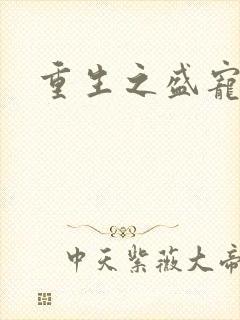 重生之盛宠
中天紫薇大帝